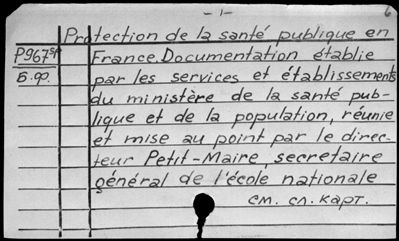 - 1 - 6
Protection de la santé publique en
P967sp France. Documentation établie
б.ф. par les services et établissements
du ministère de la santé pub-
lique et de la population, réunie
et mise au point par le direc-
teur Petit-Maire, secretaire
général de l'école nationale
см. сл. карт.